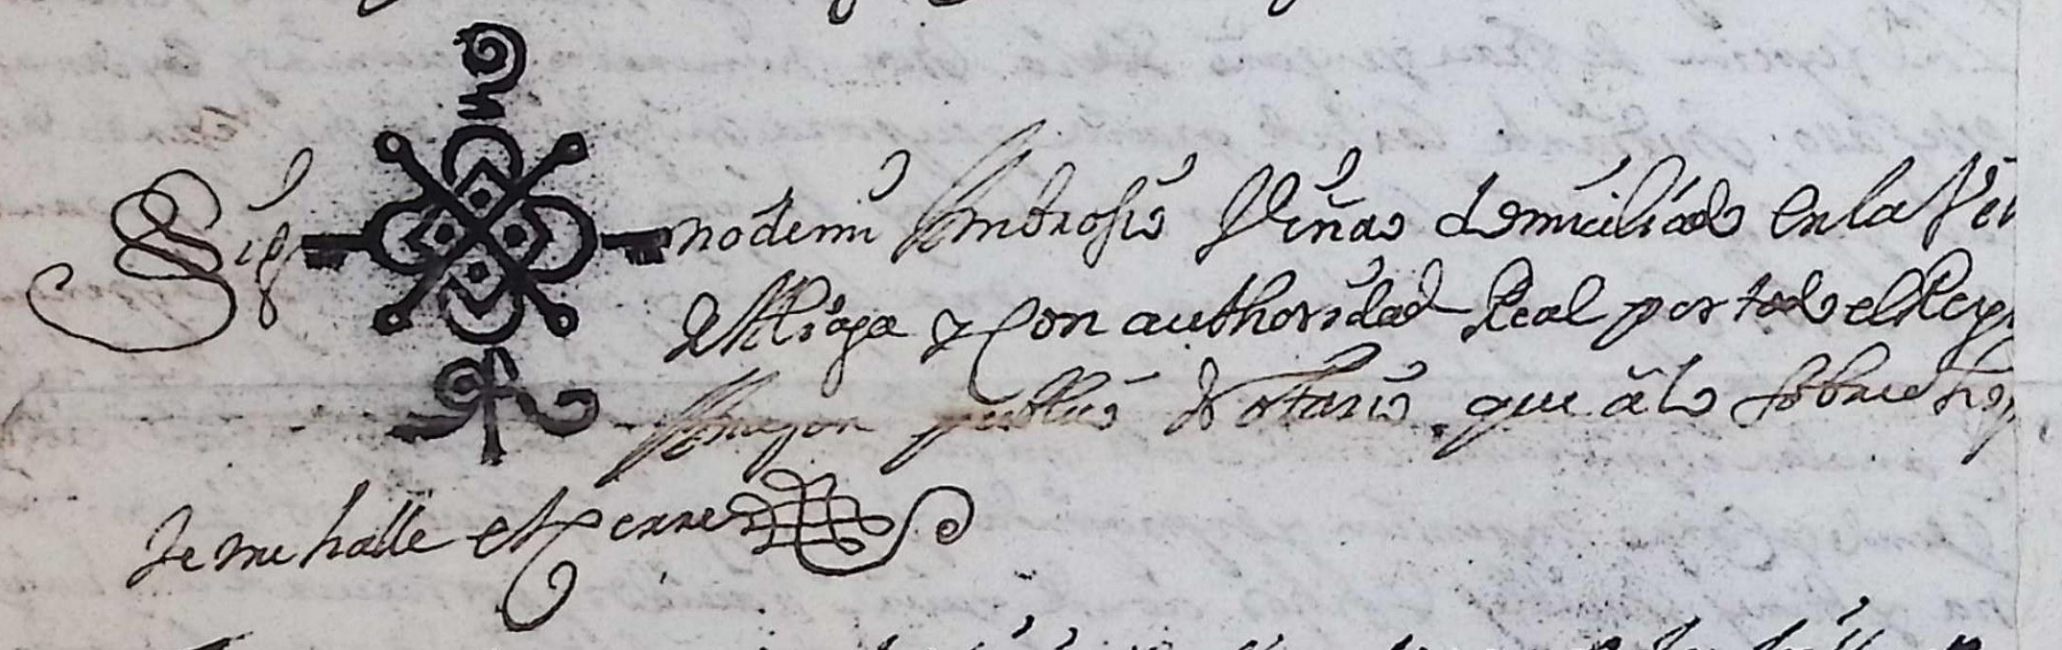 Sig no de mi Ambrosio Viñas domiciliado en la Vil
de Aliaga y con authoridad Real por todo el Reyn
Aragon publico Notario que à lo sobredho
se me halle et cerre